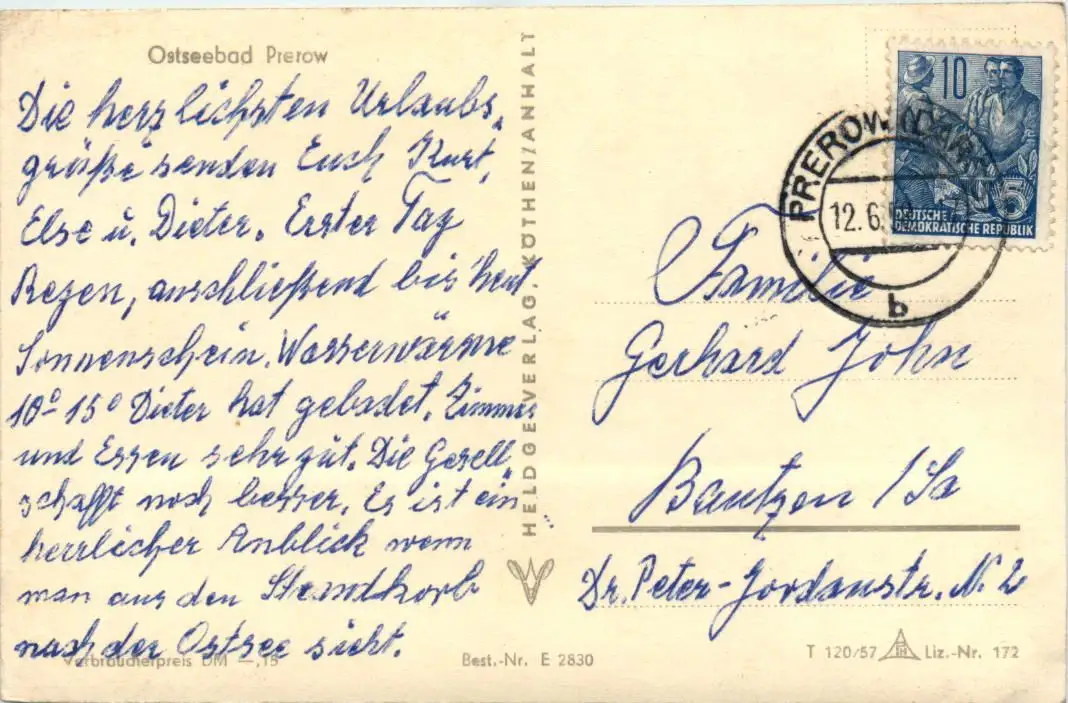 Ostseebad Prerow
Die herzlichsten Urlaubs„
grüße senden Euch Kurt,
Else u. Dieter. Erster Tag
Regen, anschließend bis heut
Sonnenschein. Wasserwärme
10°-15° Dieter hat gebadet. Zimmer
und Essen sehr gut. Die Gesell„
schafft noch besser. Es ist ein
herrlicher Anblick wenn
man aus den Strandkorb
nach der Ostsee sieht.
Verbraucherpreis DM —,15
Best.-Nr. E 2830
HELDGE VERLAG, KÖTHEN/ANHALT
10
5
DEUTSCHE
DEMOKRATISCHE REPUBLIK
PREROW
12.6.
b
Familie
Gerhard John
Bautzen /Sa
Dr. Peter-Jordanstr. N. 2
T 120/57
Liz.-Nr. 172